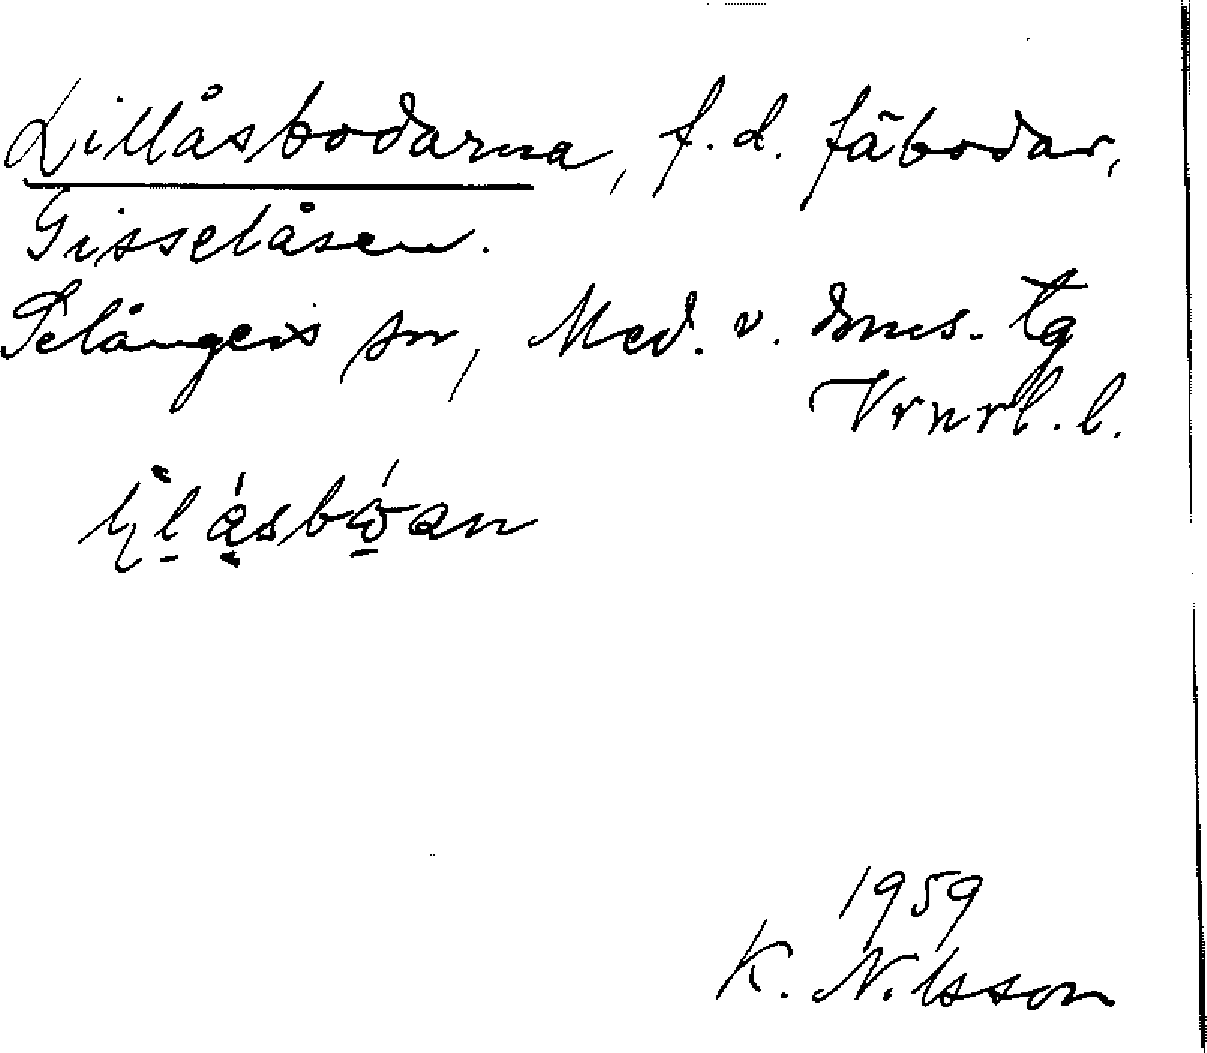 Lillåsbodarna, f.d. fäbodar,
Gisselåsen.
Selångers sn, Med. v. doms. tg
Vrnrl. l.
1959
K. Nilsson